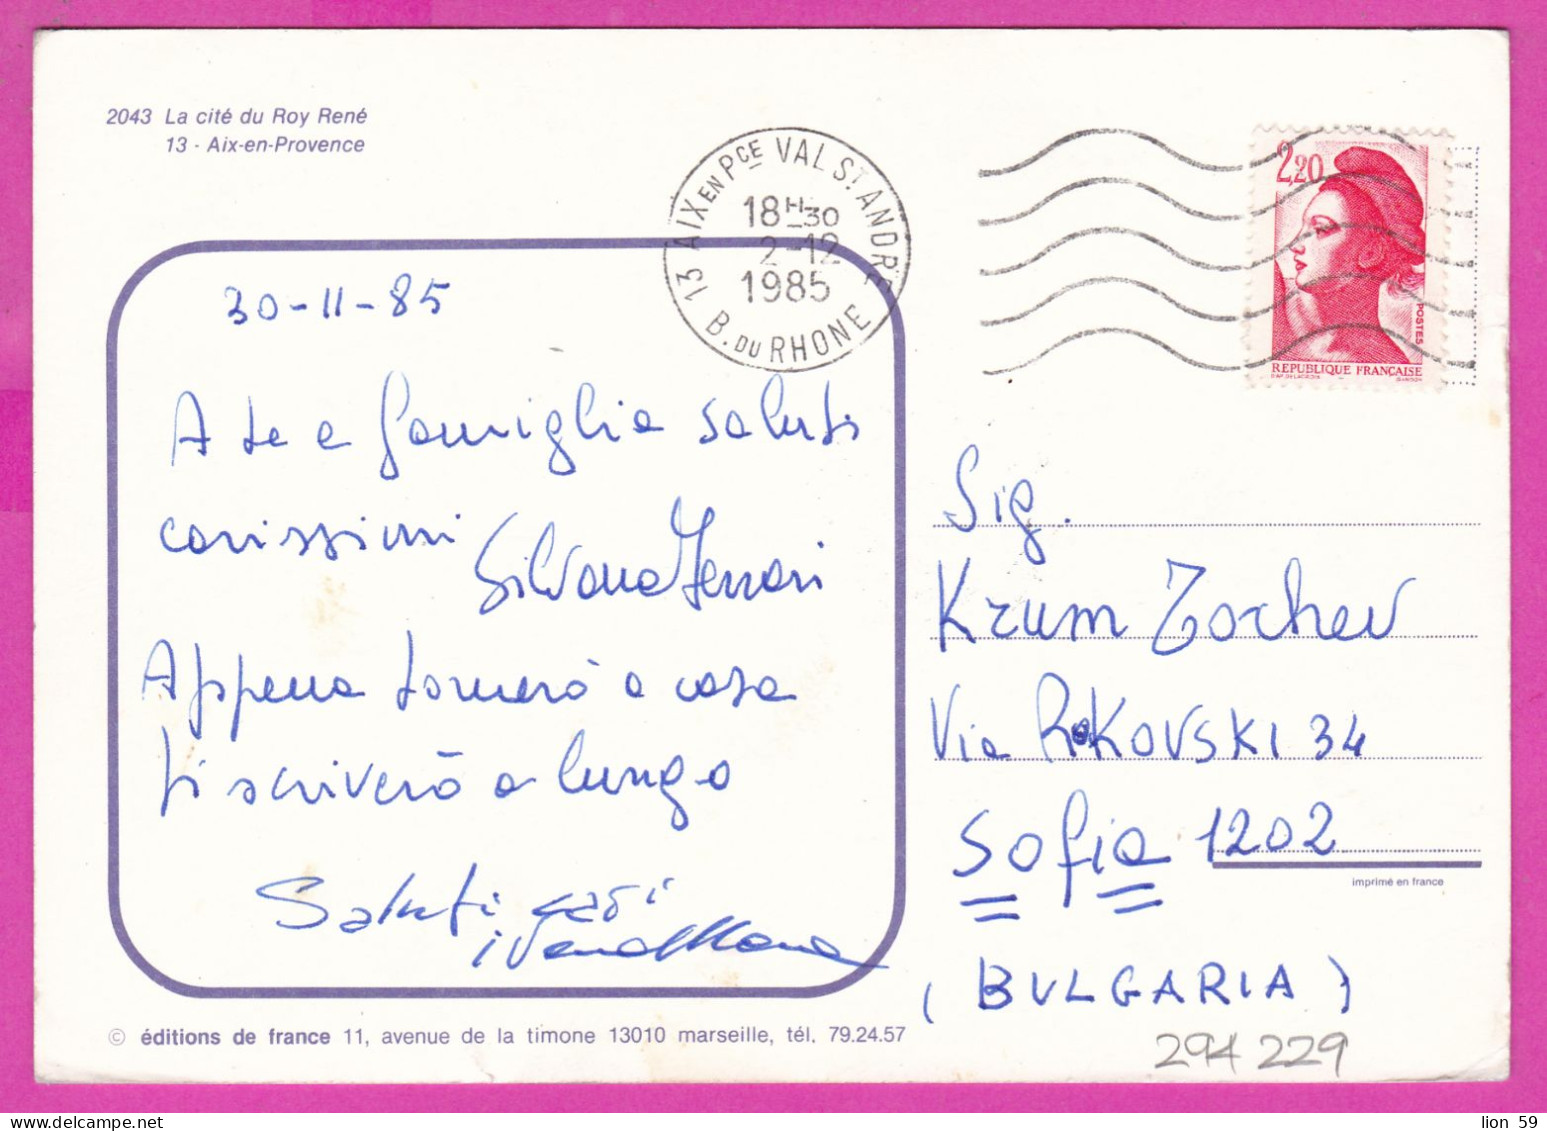 2043 La cité du Roy René
13 - Aix-en-Provence
13 AIX EN PCE VAL ST ANDRE
18H30
2-12
1985
B. DU RHONE
2,20
POSTES
REPUBLIQUE FRANÇAISE
30-11-85
A te e famiglia saluti
carissimi Silvana Ferrari
Appena tornerò a casa
ti scriverò a lungo
Saluti cari
Sig.
Krum Zochev
Via RAKOVSKI 34
Sofia 1202
imprimé en france
(BULGARIA)
© éditions de france 11, avenue de la timone 13010 marseille, tél. 79.24.57
294229
lion 59